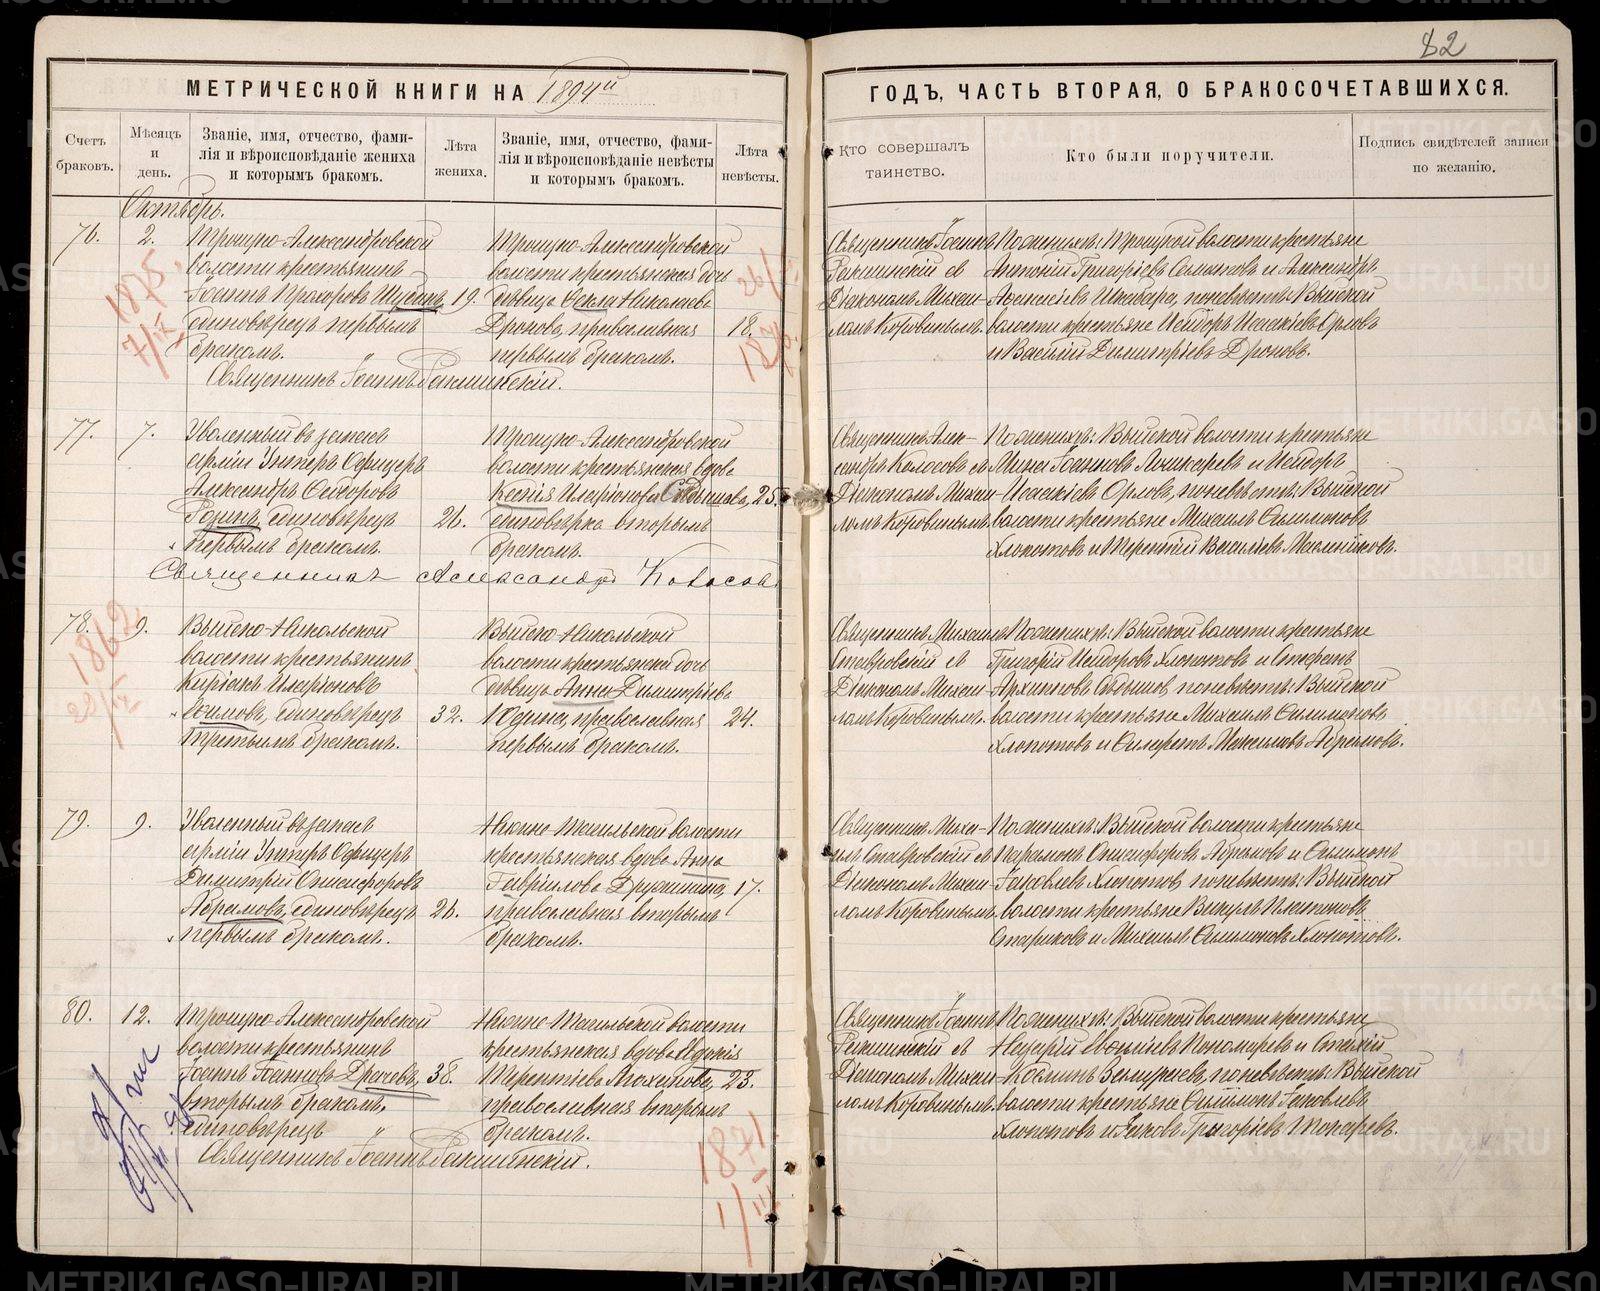 82
МЕТРИЧЕСКОЙ КНИГИ НА 1894й
ГОДЪ, ЧАСТЬ ВТОРАЯ, О БРАКОСОЧЕТАВШИХСЯ.
Счетъ браковъ.
Мѣсяцъ и день.
Званіе, имя, отчество, фами-
лія и вѣроисповѣданіе жениха
и которымъ бракомъ.
Лѣта жениха.
Званіе, имя, отчество, фами-
лія и вѣроисповѣданіе невѣсты
и которымъ бракомъ.
Лѣта невѣсты.
Кто совершалъ
таинство.
Кто были поручители.
Подпись свидѣтелей записи
по желанію.
Октябрь.
76. 2.
Троицко-Александровской
волости крестьянинъ
Іоаннъ Прохоровъ 19.
единовѣрецъ первымъ
бракомъ.
Троицко-Александровской
волости крестьянская дочь
дѣвица Фекла Николаева
Дронова, православная 18.
первымъ бракомъ.
Священникъ Іоаннъ
Діакономъ Михаи-
ломъ Коровинымъ.
По женихѣ: Троицкой волости крестьяне
Антоній Григоріевъ и Александръ
по невѣстѣ: Выйской
волости крестьяне Исидоръ Исаакіевъ Орловъ
и Василій Димитріевъ Дроновъ.
1875
7/IX
1876
Священникъ Іоаннъ
77. 7.
Уволенный въ запасъ
арміи Унтеръ Офицеръ
Александръ Сидоровъ
единовѣрецъ 26.
первымъ бракомъ.
Троицко-Александровской
волости крестьянская вдова
Ксенія Иларіонова 25.
единовѣрка вторымъ
бракомъ.
Священникъ Алек-
сандръ Колосовъ съ
Діакономъ Михаи-
ломъ Коровинымъ.
По женихѣ: Выйской волости крестьяне
Мина Іоанновъ и Исидоръ
Исаакіевъ Орловъ, по невѣстѣ: Выйской
волости крестьяне Михаилъ Филимоновъ
Хлопотовъ и Терентій Васильевъ Масленниковъ.
Священникъ Александръ Колосовъ
78. 9.
Выйско-Никольской
волости крестьянинъ
Киріакъ Иларіоновъ
единовѣрецъ 32.
третьимъ бракомъ.
Выйско-Никольской
волости крестьянская дочь
дѣвица Анна Димитріева
Юдина, православная 24.
первымъ бракомъ.
Священникъ Михаилъ
Ставровскій съ
Діакономъ Михаи-
ломъ Коровинымъ.
По женихѣ: Выйской волости крестьяне
Григорій Исидоровъ Хлопотовъ и Стефанъ
Архиповъ по невѣстѣ: Выйской
волости крестьяне Михаилъ Филимоновъ
Хлопотовъ и Максимовъ Абрамовъ.
1862
79. 9.
Уволенный въ запасъ
арміи Унтеръ Офицеръ
Димитрій Онисифоровъ
Абрамовъ, единовѣрецъ 26.
первымъ бракомъ.
Нижне-Тагильской волости
крестьянская вдова Анна
Гавріилова Дружинина, 17.
православная вторымъ
бракомъ.
Священникъ Миха-
илъ Ставровскій съ
Діакономъ Михаи-
ломъ Коровинымъ.
По женихѣ: Выйской волости крестьяне
Парамонъ Онисифоровъ Абрамовъ и Филимонъ
Іаковлевъ Хлопотовъ, по невѣстѣ: Выйской
волости крестьяне Викулъ Платоновъ
Стариковъ и Михаилъ Филимоновъ Хлопотовъ.
80. 12.
Троицко-Александровской
волости крестьянинъ
Іоаннъ Іоанновъ Драчевъ, 38.
вторымъ бракомъ,
единовѣрецъ
Нижне-Тагильской волости
крестьянская вдова Евдокія
Терентіева 23.
православная вторымъ
бракомъ.
Священникъ Іоаннъ
Діакономъ Михаи-
ломъ Коровинымъ.
По женихѣ: Выйской волости крестьяне
Назарій Пономаревъ и
по невѣстѣ: Выйской
волости крестьяне Филимонъ Іаковлевъ
Хлопотовъ и Іаковъ Григоріевъ Токаревъ.
Священникъ Іоаннъ
1871
1/III
METRIKI.GASO-URAL.RU